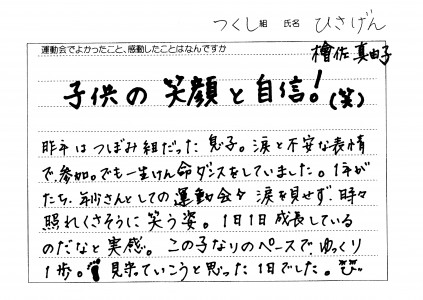 つくし組 氏名 ひさげん
檜佐 真由子
運動会でよかったこと、感動したことはなんですか
子供の 笑顔と自信!(笑)
昨年はつぼみ組だった息子。涙と不安な表情
で、参加。でも一生けん命ダンスをしていました。1年が
たち、年少さんとしての運動会々 涙を見せず、時々
照れくさそうに笑う姿。1日1日成長している
のだなと実感。この子なりのペースで、ゆっくり
1歩。見ていこうと思った1日でした。